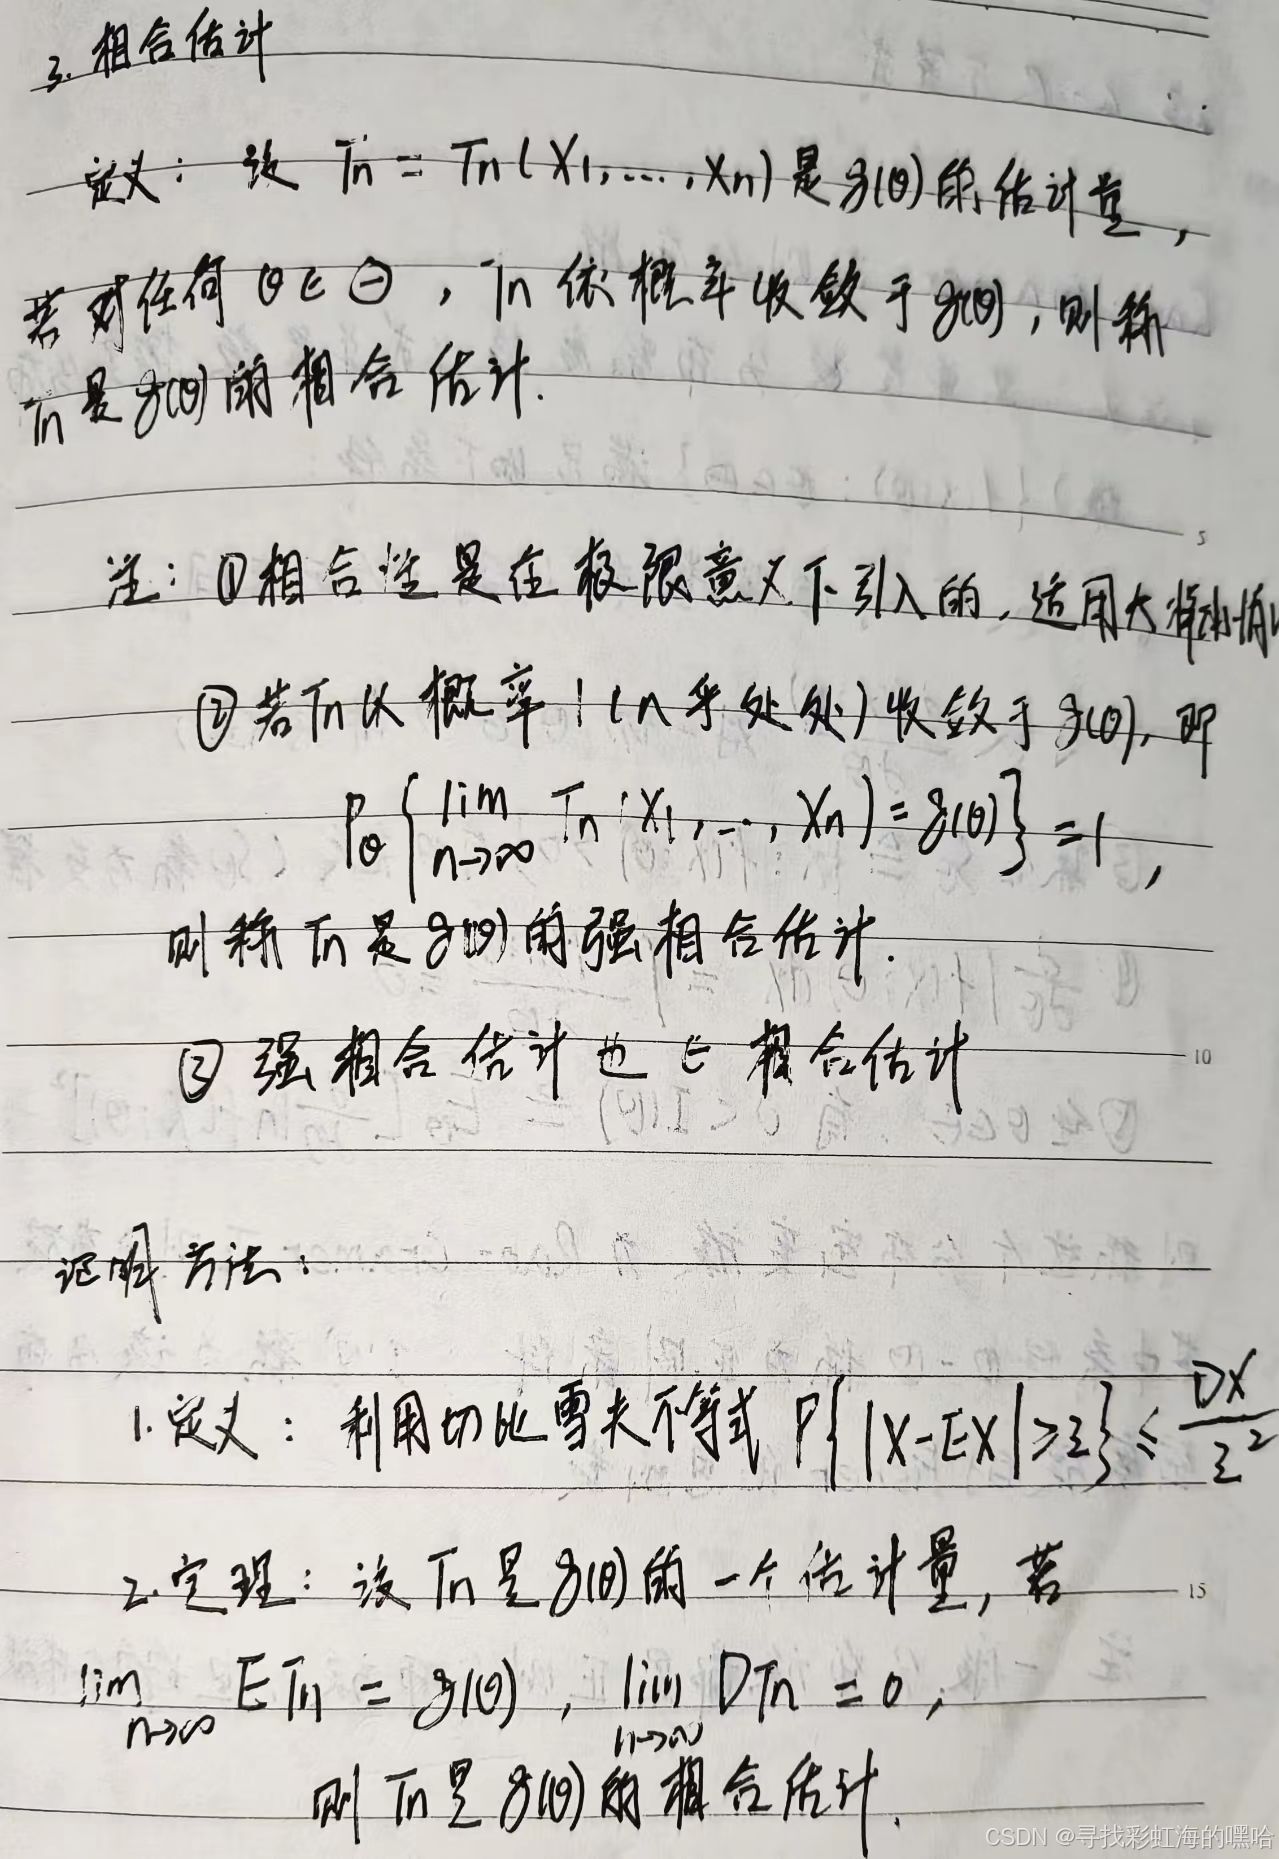 3. 相合估计
定义: 设 Tn = Tn(X1,...,Xn)是g(θ)的估计量,
若对任何θ∈Θ, Tn 依概率收敛于g(θ),则称
Tn是g(θ)的相合估计.
5
注: ①相合性是在极限意义下引入的,适用大样本
②若Tn以概率1(几乎处处)收敛于g(θ),即
Pθ{lim n→∞ Tn(X1,...,Xn)=g(θ)}=1,
则称Tn是g(θ)的强相合估计.
③强相合估计也∈相合估计
10
证明方法:
1.定义: 利用切比雪夫不等式 P{|X-EX|≥ε}≤DX/ε²
2.定理: 设Tn是g(θ)的一个估计量,若
15
lim n→∞ ETn = g(θ), lim n→∞ DTn = 0,
则Tn是g(θ)的相合估计.
CSDN @寻找彩虹海的嘿哈